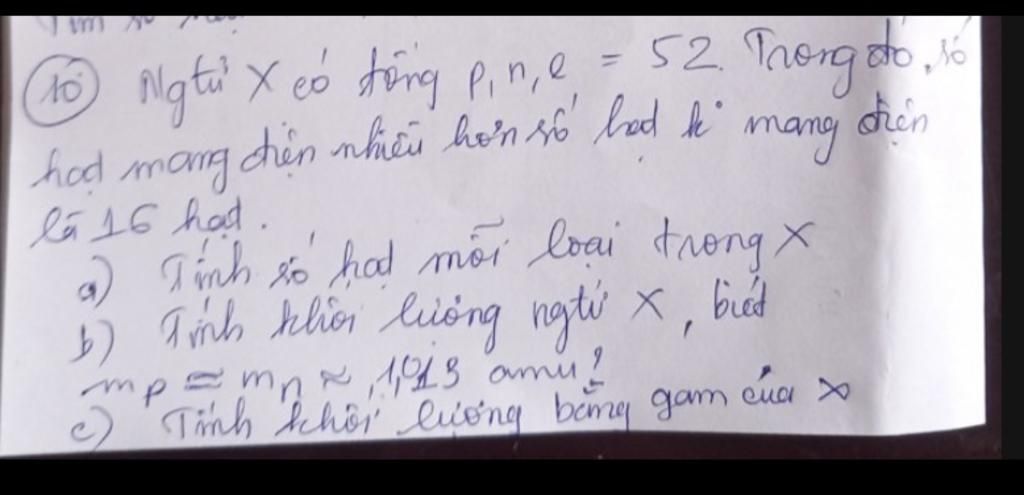 Tìm số
10 Ngtử X có tổng p, n, e = 52. Trong đó, số
hạt mang điện nhiều hơn số hạt k° mang điện
là 16 hạt.
a) Tính số hạt mỗi loại trong X
b) Tính khối lượng ngtử X, biết
mp ≈ mn ≈ 1,013 amu?
c) Tính khối lượng bằng gam của X